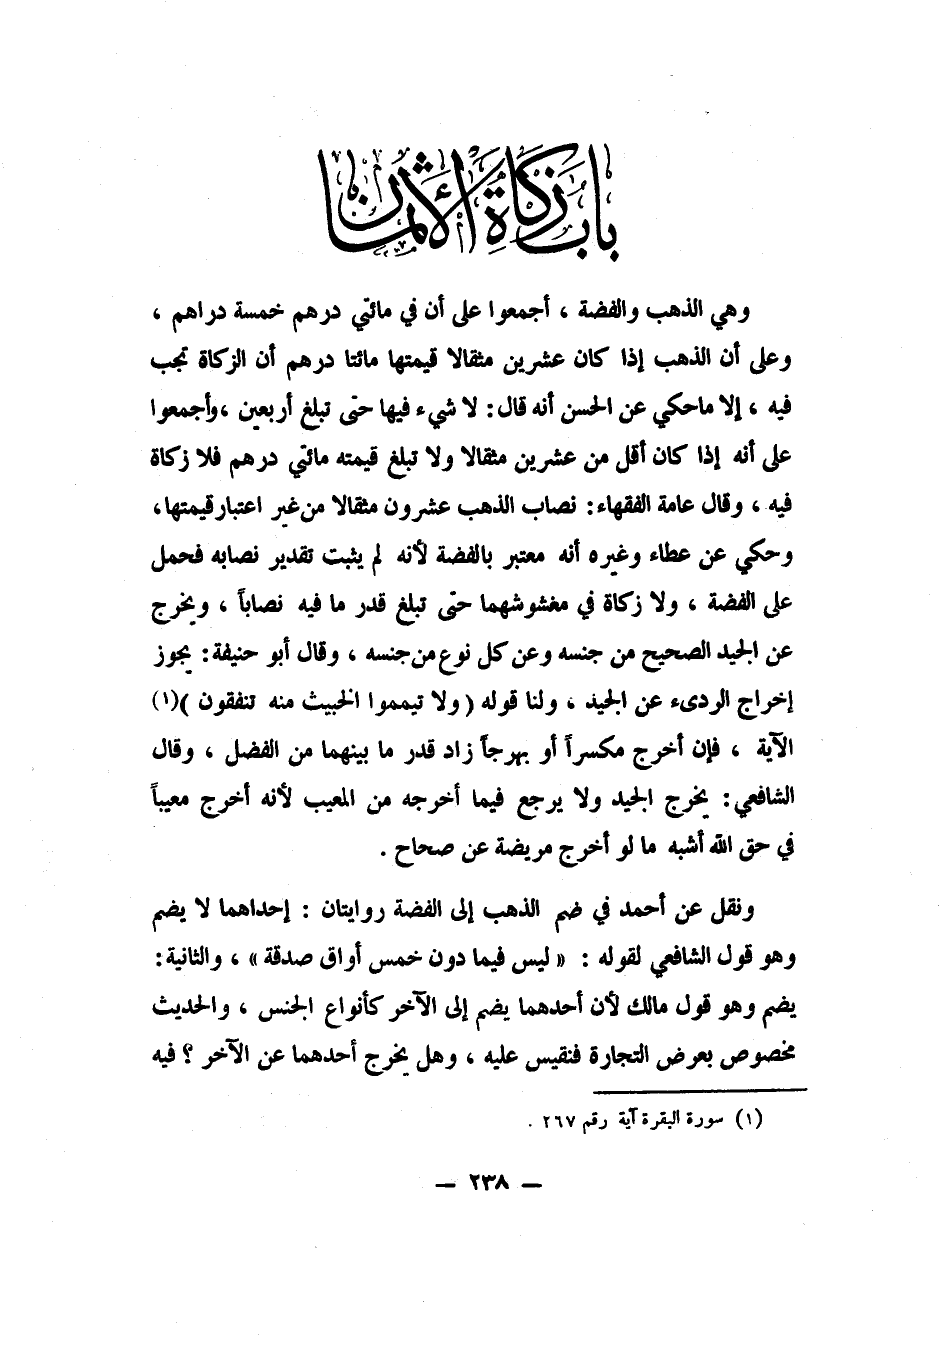 باب زكاة الأثمان
وهي الذهب والفضة ، أجمعوا على أن في مائتي درهم خمسة دراهم ،
وعلى أن الذهب إذا كان عشرين مثقالا قيمتها مائتا درهم أن الزكاة تجب
فيه ، إلا ماحكي عن الحسن أنه قال : لا شيء فيها حتى تبلغ أربعين ،وأجمعوا
على أنه إذا كان أقل من عشرين مثقالا ولا تبلغ قيمته مائتي درهم فلا زكاة
فيه ، وقال عامة الفقهاء : نصاب الذهب عشرون مثقالا من غير اعتبار قيمتها ،
وحكي عن عطاء وغيره أنه معتبر بالفضة لأنه لم يثبت تقدير نصابه فحمل
على الفضة ، ولا زكاة في مغشوشهما حتى تبلغ قدر ما فيه نصاباً ، ويخرج
عن الجيد الصحيح من جنسه وعن كل نوع من جنسه ، وقال أبو حنيفة : يجوز
إخراج الردىء عن الجيد ، ولنا قوله ( ولا تيمموا الخبيث منه تنفقون )(١)
الآية ، فإن أخرج مكسراً أو بهرجاً زاد قدر ما بينهما من الفضل ، وقال
الشافعي : يخرج الجيد ولا يرجع فيما أخرجه من المعيب لأنه أخرج معيباً
في حق الله أشبه ما لو أخرج مريضة عن صحاح .
ونقل عن أحمد في ضم الذهب إلى الفضة روايتان : إحداهما لا يضم
وهو قول الشافعي لقوله : « ليس فيما دون خمس أواق صدقة » ، والثانية :
يضم وهو قول مالك لأن أحدهما يضم إلى الآخر كأنواع الجنس ، والحديث
مخصوص بعرض التجارة فنقيس عليه ، وهل يخرج أحدهما عن الآخر ؟ فيه
(١) سورة البقرة آية رقم ٢٦٧ .
— ٢٣٨ —